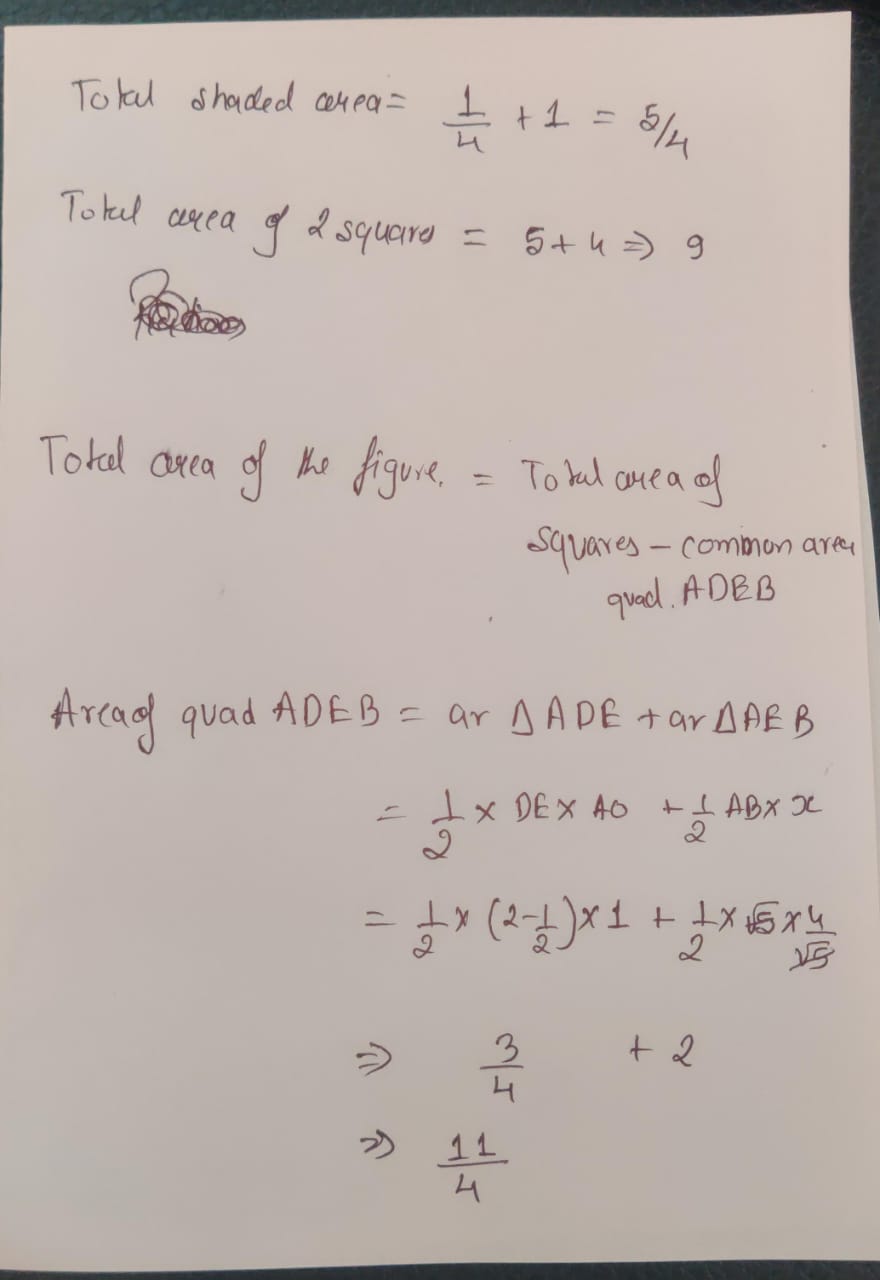 Total shaded area = 1/4 + 1 = 5/4
Total area of 2 squares = 5 + 4 ⇒ 9
Total area of the figure. = Total area of
squares – common area
quad. ADEB
Area of quad ADEB = ar Δ ADE + ar Δ AEB
= 1/2 × DE × AD + 1/2 AB × x
= 1/2 × (2 - 1/2) × 1 + 1/2 × √5 × 4/√5
⇒ 3/4 + 2
⇒ 11/4